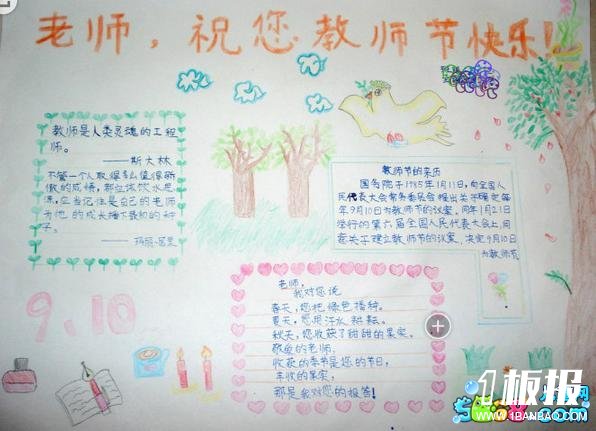 老师，祝您教师节快乐！
教师是人类灵魂的工程
师。
——斯大林
不管一个人取得多么值得骄
傲的成绩，都应该饮水思
源，应当记住是自己的老师
为他的成长播下最初的种
子。
——玛丽·居里
教师节的来历
国务院于1985年1月11日，向全国人
民代表大会常务委员会提出关于确定每
年9月10日为教师节的议案。同年1月21日
举行的第六届全国人民代表大会上，同
意关于建立教师节的议案，决定9月10日
为教师节。
老师，
我对您说
春天，您把绿色播种。
夏天，您用汗水耕耘。
秋天，您收获了甜甜的果实。
敬爱的老师，
收获的季节是您的节日，
丰收的果实，
那是我对您的报答！
9.10
1板报
WWW.1BANBAO.COM